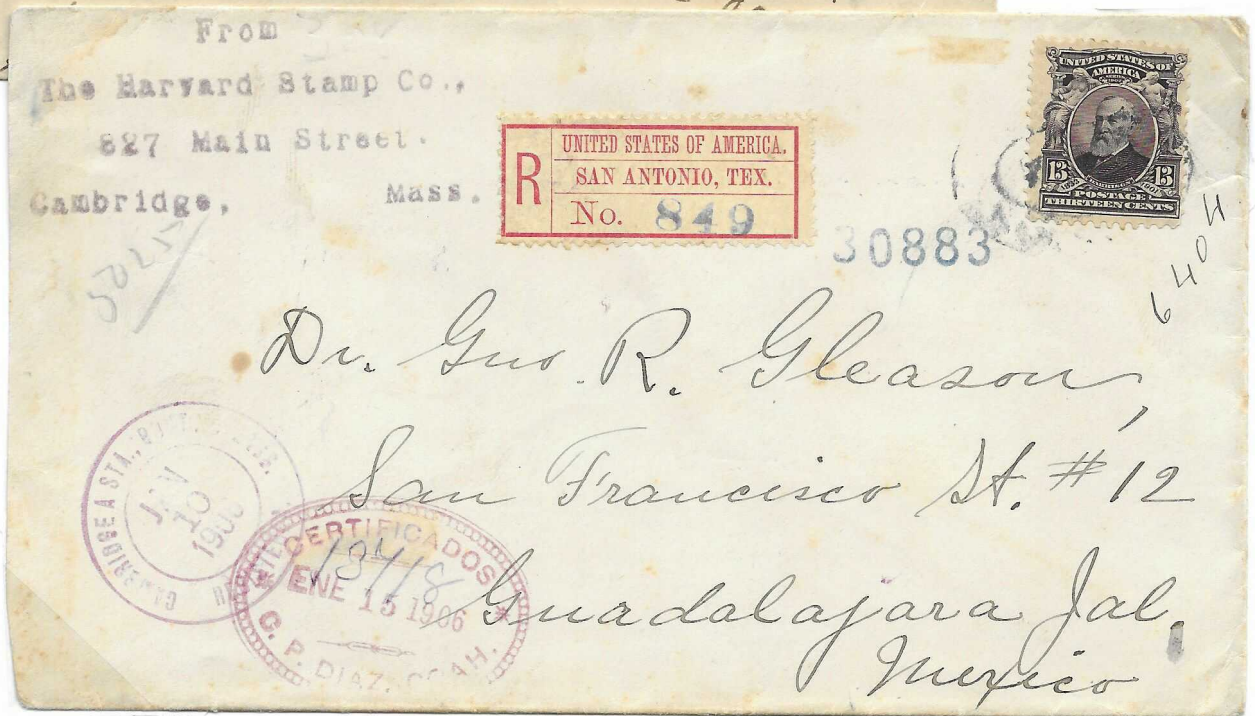 From
The Harvard Stamp Co.,
827 Main Street.
Cambridge, Mass.
R
UNITED STATES OF AMERICA.
SAN ANTONIO, TEX.
No. 849
30883
UNITED STATES OF
AMERICA
13 13
POSTAGE
THIRTEEN CENTS
6404
Dr. Geo. R. Gleason,
San Francisco St. #12
Guadalajara Jal.
Mexico
CAMBRIDGE A STA.,
JAN
10
1906
CERTIFICADOS
13418
ENE 15 1906
C. P. DIAZ, COAH.